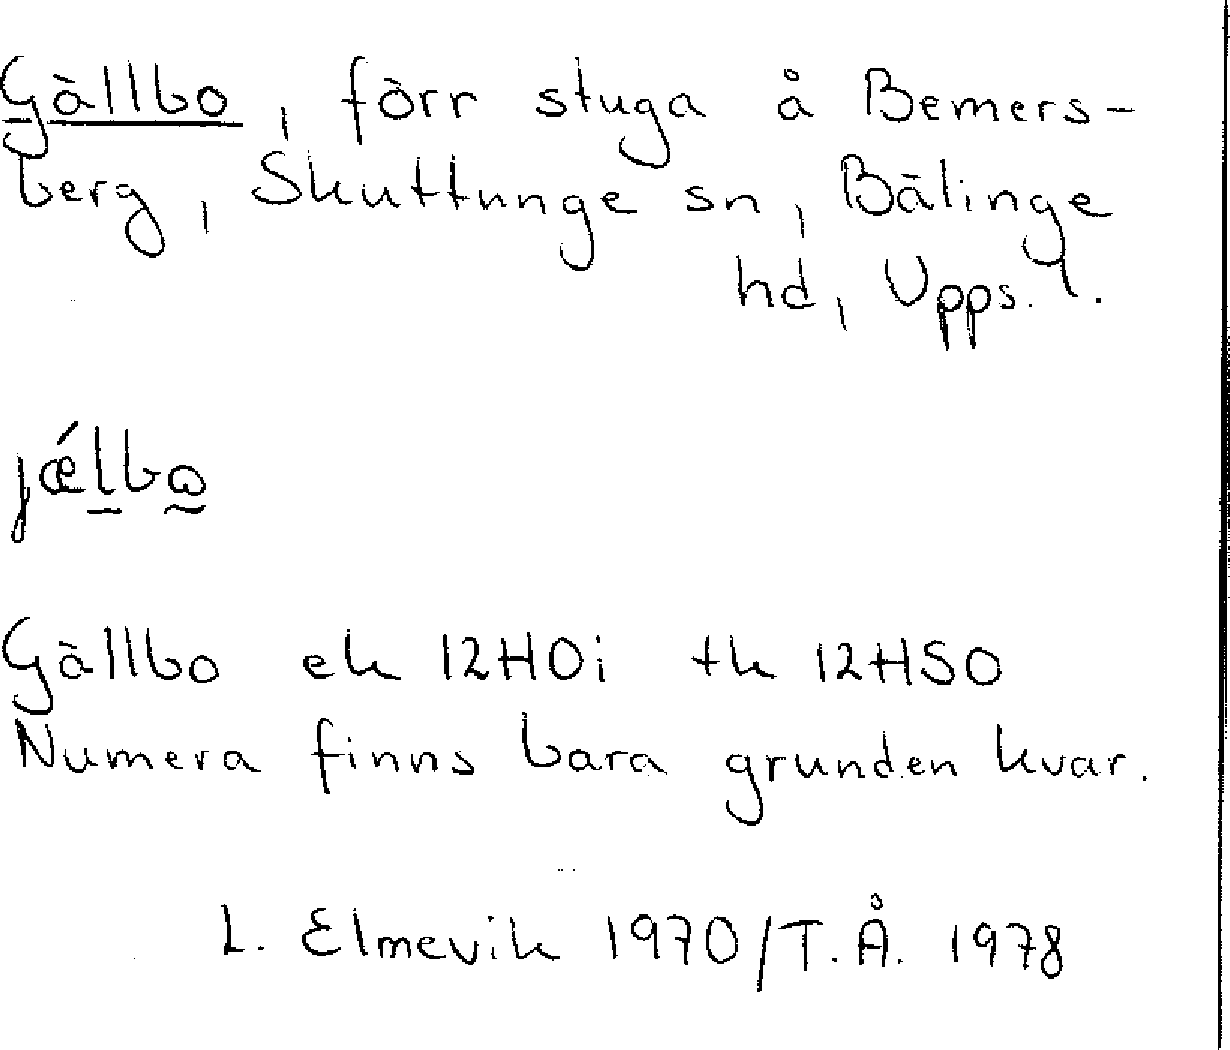 Gällbo, förr stuga å Bemers-
berg, Skuttunge sn, Bälinge
hd, Upps. l.
jǽlbω
Gällbo ek 12H0i tk 12HSO
Numera finns bara grunden kvar.
L. Elmevik 1970/T.Å. 1978